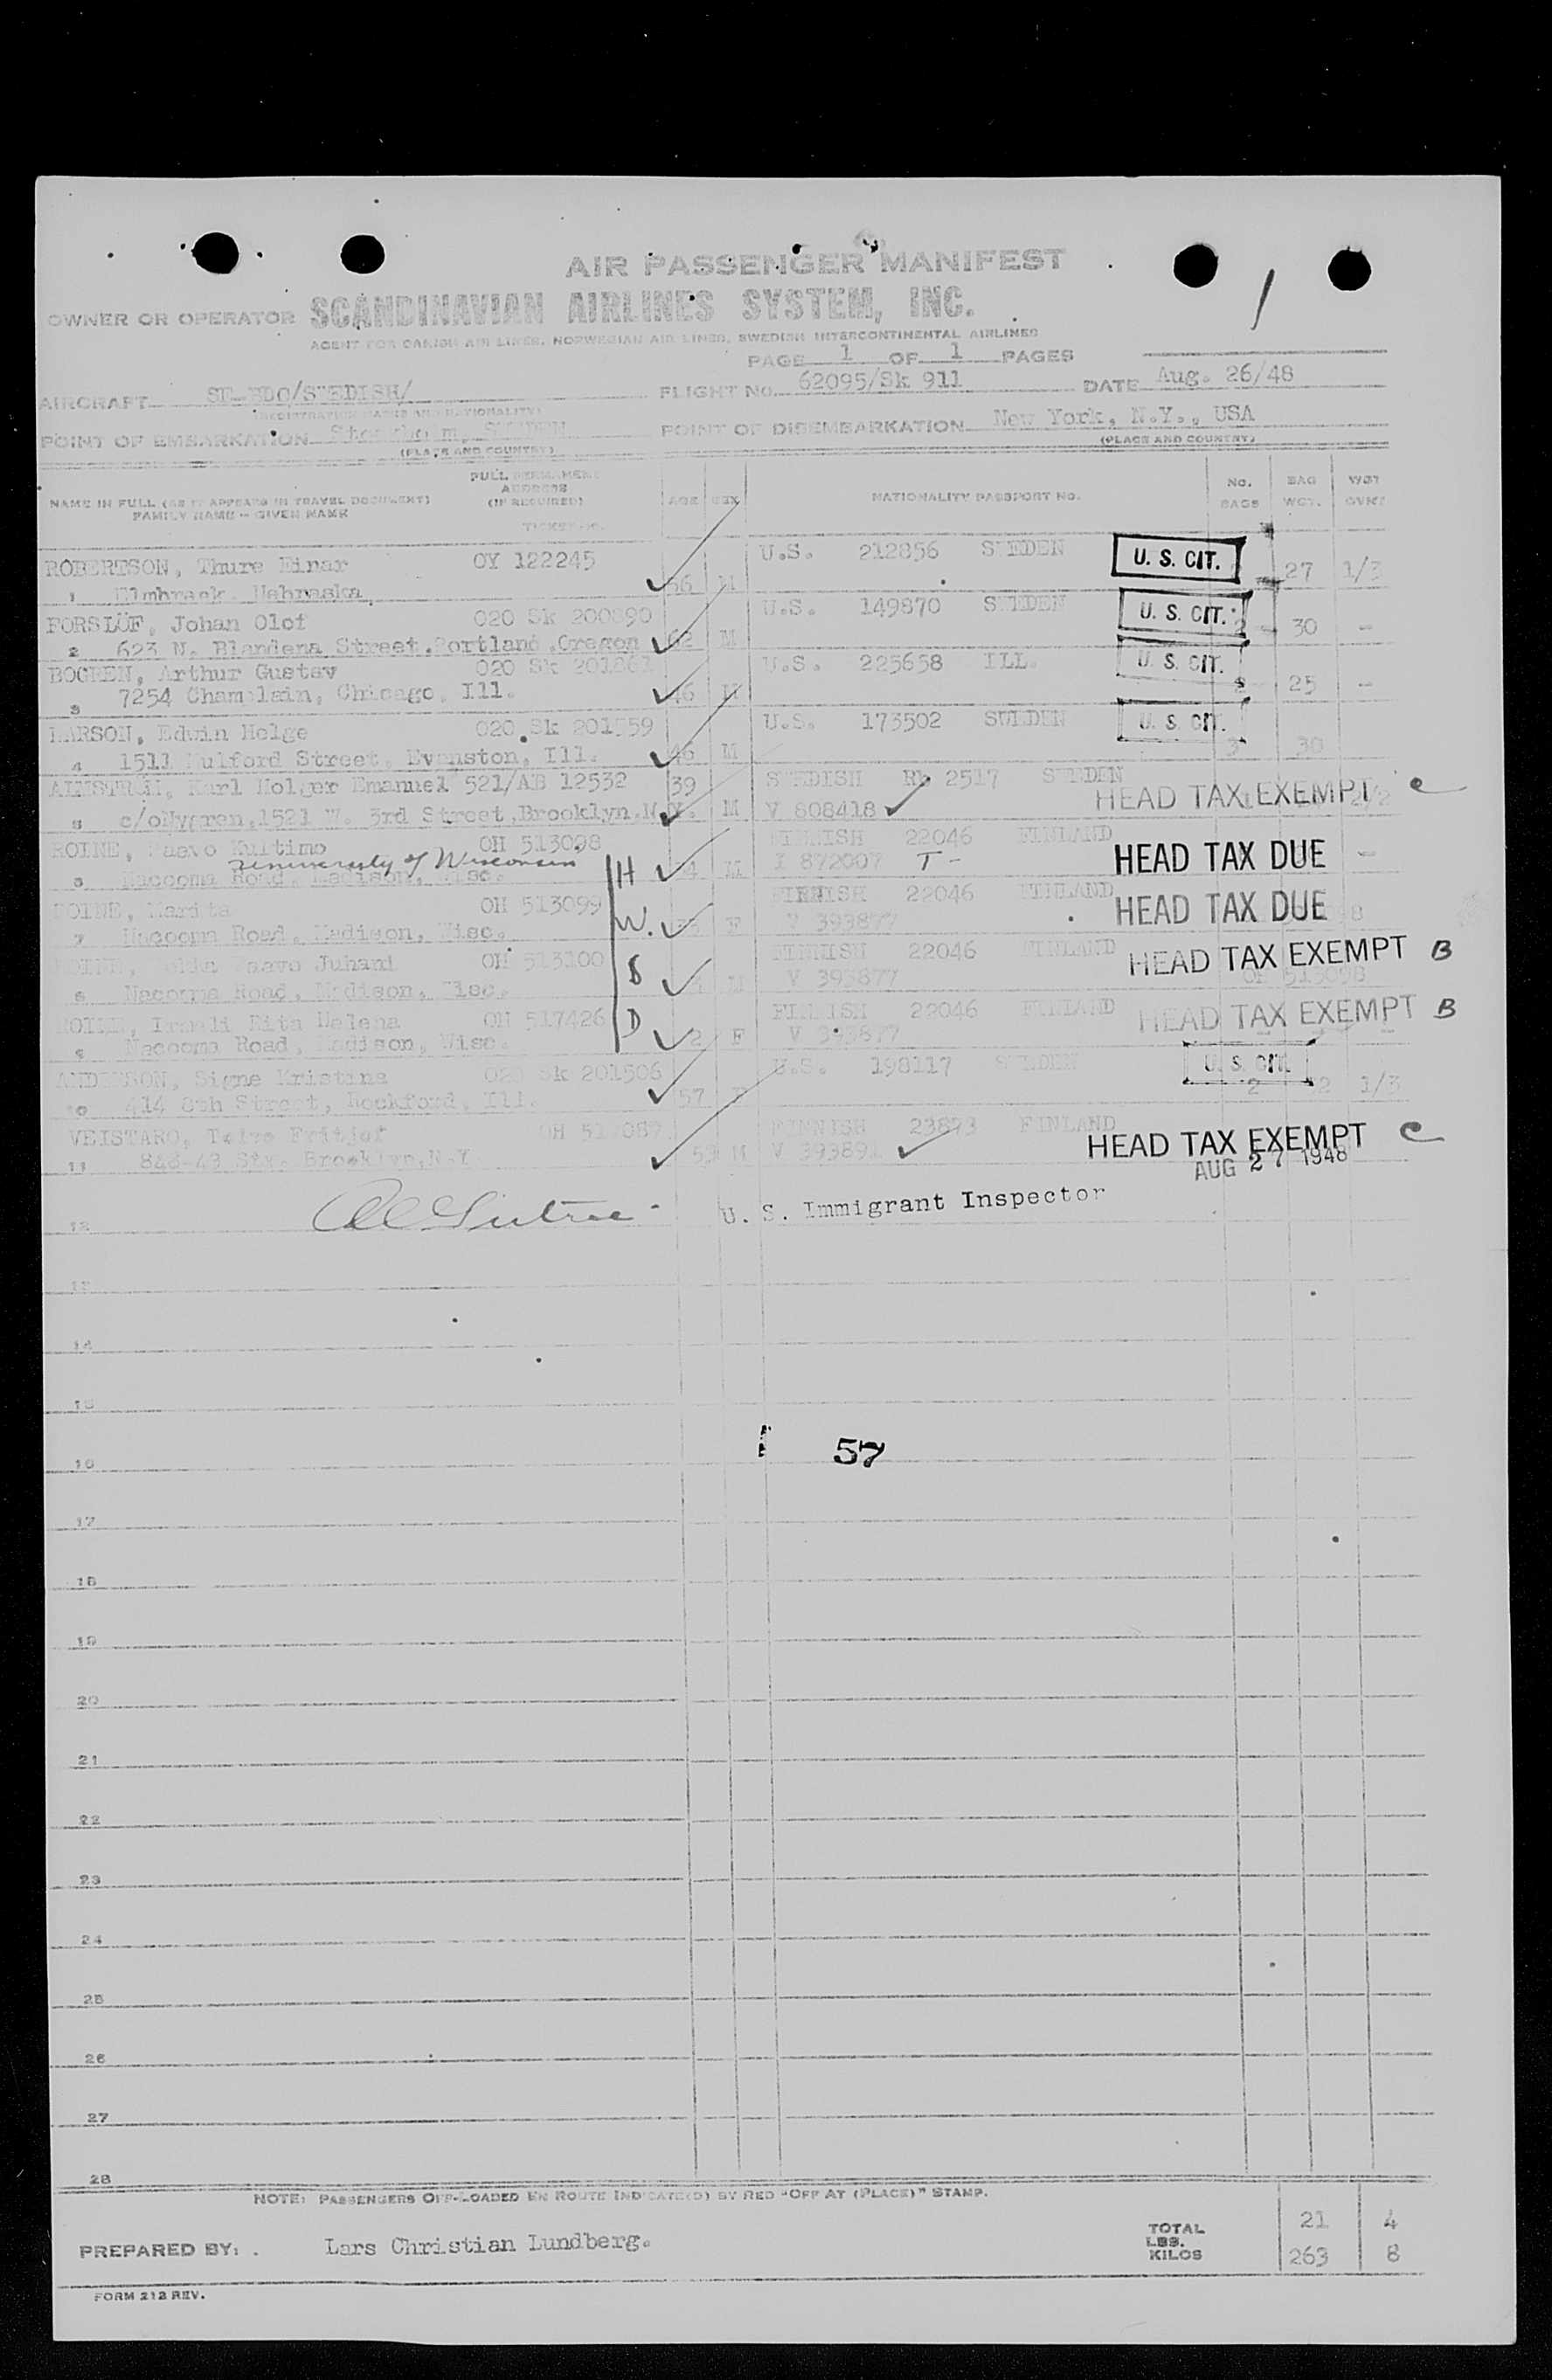 AIR PASSENGER MANIFEST
OWNER OR OPERATOR SCANDINAVIAN AIRLINES SYSTEM, INC.
AGENT FOR DANISH AIR LINES, NORWEGIAN AIR LINES, SWEDISH INTERCONTINENTAL AIRLINES
PAGE 1 OF 1 PAGES
AIRCRAFT /SWEDISH/ FLIGHT NO. 62095/Sk 911 DATE Aug. 26/48
(REGISTRATION MARKS AND NATIONALITY)
POINT OF EMBARKATION Stockholm, SWEDEN POINT OF DISEMBARKATION New York, N.Y., USA
(PLACE AND COUNTRY) (PLACE AND COUNTRY)
NAME IN FULL (AS IT APPEARS IN TRAVEL DOCUMENT) FAMILY NAME - GIVEN NAME FULL PERMANENT ADDRESS (IF REQUIRED) TICKET NO. AGE SEX NATIONALITY PASSPORT NO. NO. BAGS BAG WGT. WGT
ROBERTSON, Thure Einar OY 122245 U.S. 212856 SWEDEN U. S. CIT.
1 Nebraska 56 M 27 1/3
FORSLÖF, Johan Olof 020 Sk 200890 U.S. 149870 SWEDEN U. S. CIT.
2 623 N. Blandena Street, Portland, Oregon 62 M 2 30 -
BOGREN, Arthur Gustav 020 Sk U.S. 225658 ILL. U. S. CIT.
3 7254 Champlain, Chicago, Ill. 46 M 2 25 -
LARSON, Edwin Holge 020 Sk 201559 U.S. 173502 SWEDEN U. S. CIT.
4 1511 Mulford Street, Evanston, Ill. 46 M 3 30
Karl Holger Emanuel 521/AB 12532 39 SWEDISH 2517 SWEDEN HEAD TAX EXEMPT C
5 c/oNygren,1521 W. 3rd Street,Brooklyn.N.Y. M V 808418
ROINE, Paavo OH 513098 FINNISH 22046 FINLAND
University of Wisconsin
6 Nacooma Road, Madison, Wisc. H M 872007 T - HEAD TAX DUE -
ROINE, Marita OH 513099 FINNISH 22046 FINLAND
7 Nacooma Road, Madison, Wisc. W. F V 393877 HEAD TAX DUE
ROINE, Paavo Juhani OH 513100 FINNISH 22046 FINLAND HEAD TAX EXEMPT B
8 Nacooma Road, Madison, Wisc. S M V 393877 OH 513098
ROINE, Eita Helena OH 517426 FINNISH 22046 FINLAND HEAD TAX EXEMPT B
9 Nacooma Road, Madison, Wisc. D 2 F V 393877
ANDERSON, Signe Kristina 020 Sk 201506 U.S. 198117 SWEDEN U. S. CIT.
10 414 8th Street, Rockford, Ill. 57 F 2 1/3
VEISTARO, Fritjof OH FINNISH 23873 FINLAND HEAD TAX EXEMPT C
11 Brooklyn,N.Y 53 M V 393891 AUG 27 1948
12 U. S. Immigrant Inspector
13
14
15
57
16
17
18
19
20
21
22
23
24
25
26
27
28
NOTE: PASSENGERS OFF-LOADED EN ROUTE INDICATE(D) BY RED "OFF AT (PLACE)" STAMP.
PREPARED BY: Lars Christian Lundberg.
TOTAL 21 4
LBS.
KILOS 263 8
FORM 212 REV.